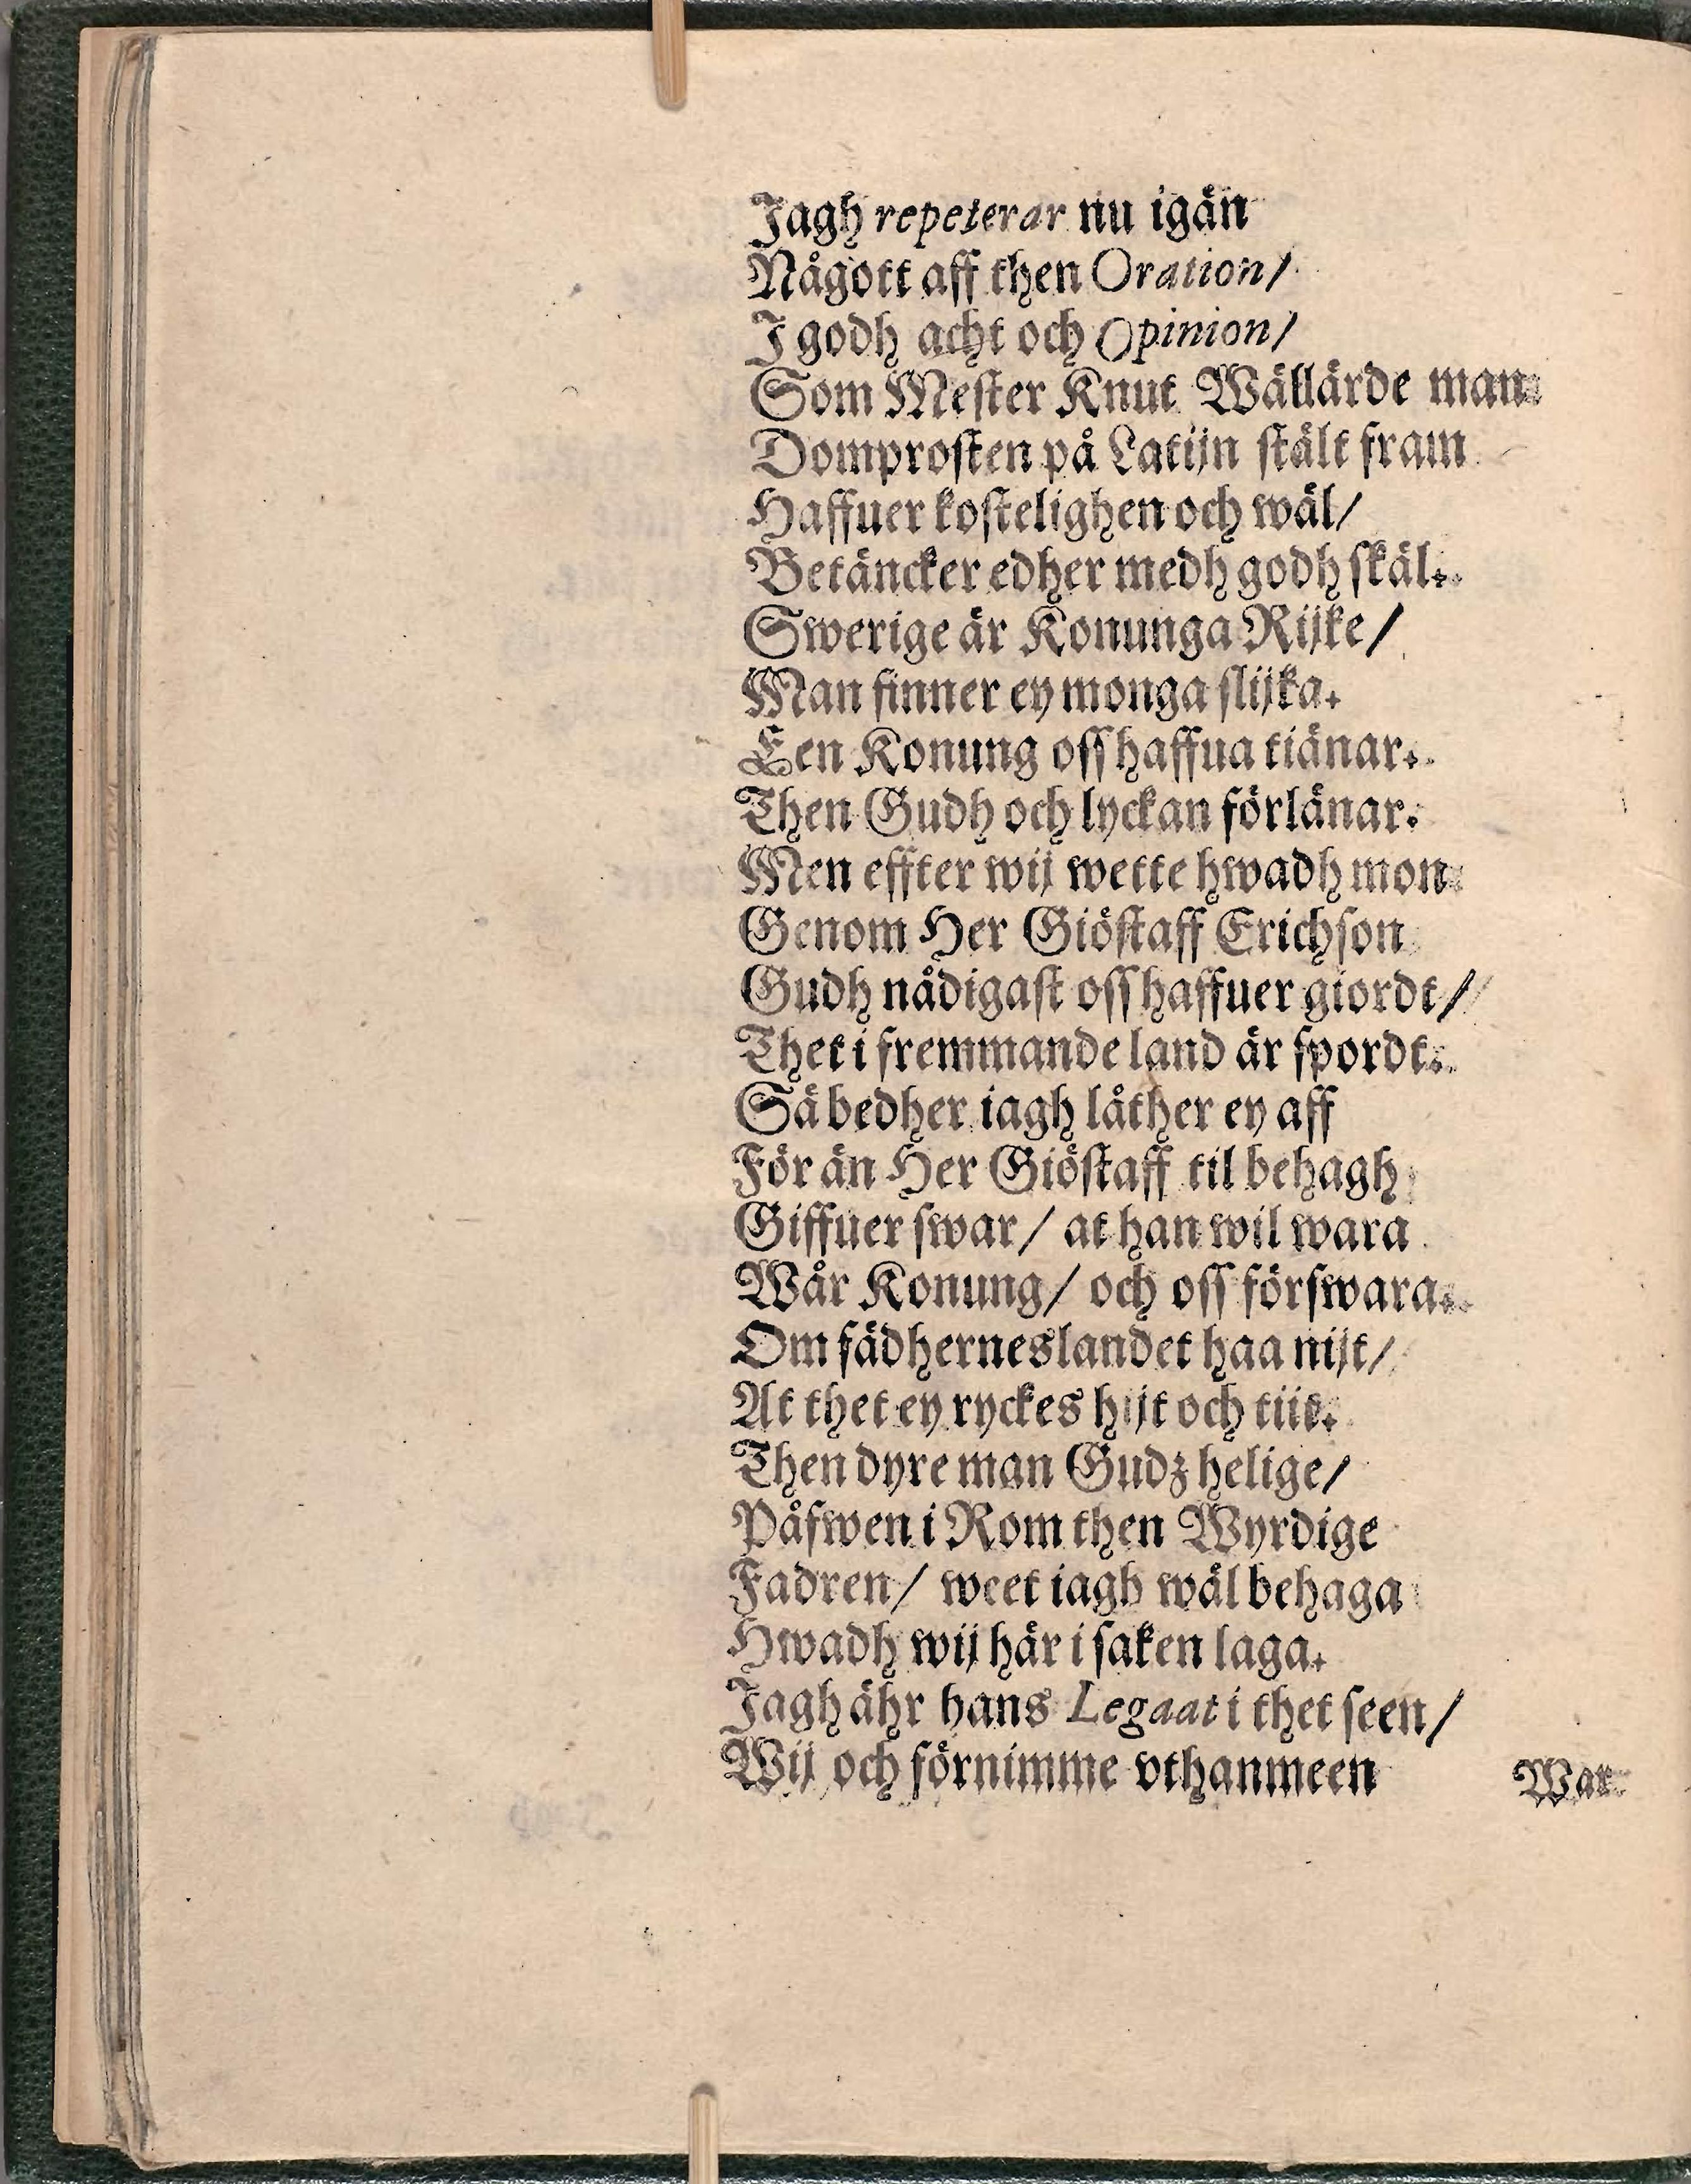 Jagh repeterar nu igän
Någott aff then Oration/
J godh acht och Opinion/
Som Mester Knut Wällärde man
Domprosten på Latijn stält fram
Haffuer kostelighen och wäl/
Betäncker edher medh godh skäl.
Swerige är Konunga Rijke/
Man finner ey monga slijka.
Een Konung oss haffua tiänar.
Then Gudh och lyckan förlänar.
Men effter wij wette hwadh mon
Genom Her Giöstaff Erichson
Gudh nådigast oss haffuer giordt/
Thet i fremmande land är spordt.
Så bedher iagh låther ey aff
För än Her Giöstaff til behagh
Giffuer swar/ at han wil wara
Wår Konung/ och oss förswara.
Om fädherneslandet haa nijt/
At thet ey ryckes hijt och tiit.
Then dyre man Gudz helige/
Påfwen i Rom then Wyrdige
Fadren/ weet iagh wäl behaga
Hwadh wij här i saken laga.
Jagh ähr hans Legaat i thet seen/
Wij och förnimme vthanmeen
War